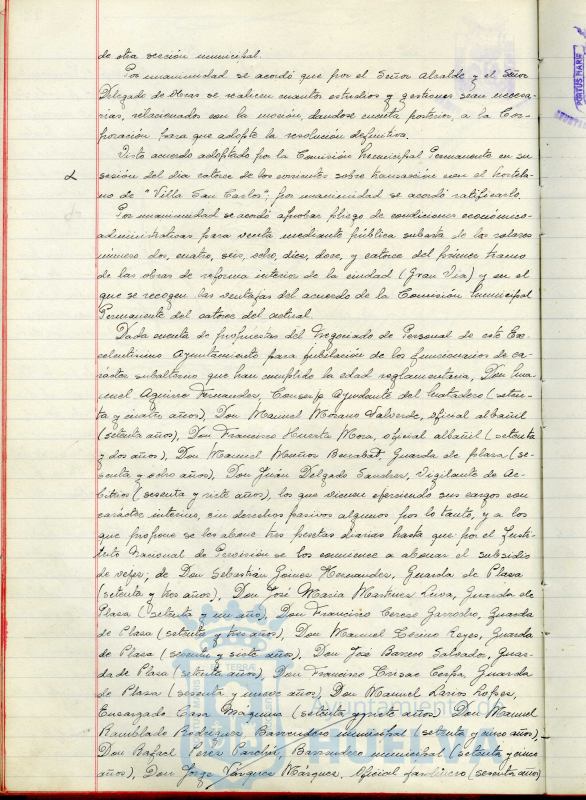 de otra sección municipal.
Por unanimidad se acordó que por el Señor Alcalde y el Señor
Delegado de Obras se realicen cuantos estudios y gestiones sean necesa-
rias, relacionados con la moción, dandose cuenta posterior, a la Cor-
poración para que adopte la resolución definitiva.
Visto acuerdo adoptado por la Comisión Municipal Permanente en su
sesión del dia catorce de los corrientes sobre transacción con el hortela-
no de "Villa San Carlos"; por unanimidad se acordó ratificarlo.
Por unanimidad se acordó aprobar pliego de condiciones económico-
administrativas para venta mediante pública subasta de los solares
número dos, cuatro, seis, ocho, diez, doce, y catorce del primer tramo
de las obras de reforma interior de la ciudad (Gran Via) y en el
que se recogen las ventajas del acuerdo de la Comisión Municipal
Permanente del catorce del actual.
Dada cuenta de propuestas del Negociado de Personal de este Ex-
celentisimo Ayuntamiento para jubilación de los funcionarios de ca-
rácter subalterno que han cumplido la edad reglamentaria, Don Ma-
nuel Aguirre Fernandez, Conserje Ayudante del Matadero (seten-
ta y cuatro años), Don Manuel Morano Valverde, oficial albañil
(setenta años), Don Francisco Huerta Mora, oficial albañil (setenta
y dos años), Don Manuel Muñoz Guarda de plaza (se-
senta y ocho años), Don Juán Delgado Sandres, Vigilante de Ar-
bitrios (sesenta y siete años), los que vienen ejerciendo sus cargos con
carácter interino, sin derechos pasivos algunos por lo tanto, y a los
que propone se les abone tres pesetas diarias hasta que por el Insti-
tuto Nacional de Previsión se les comience a abonar el subsidio
de vejez; de Don Sebastián Gomez Hernandez, Guarda de Plaza
(setenta y tres años), Don José Maria Martinez Guarda de
Plaza (setenta y un año), Don Francisco Cerezo Garrocho, Guarda
de Plaza (setenta y tres años), Don Manuel Reyes, Guarda
de Plaza (sesenta y siete años), Don José Barroso Salvador, Guar-
da de Plaza (setenta años), Don Francisco Guarda
de Plaza (sesenta y nueve años), Don Manuel Larios Lopez,
Encargado Casa Máquina (setenta y siete años) Don Manuel
Ramblado Rodriguez, Barrendero municipal (setenta y cinco años),
Don Rafael Perez Barrendero municipal (setenta y cinco
años), Don Jorge Vázquez Márquez, Oficial jardinero (sesenta años)
Ayuntamiento de
PORTUS MARIS
TERRAE